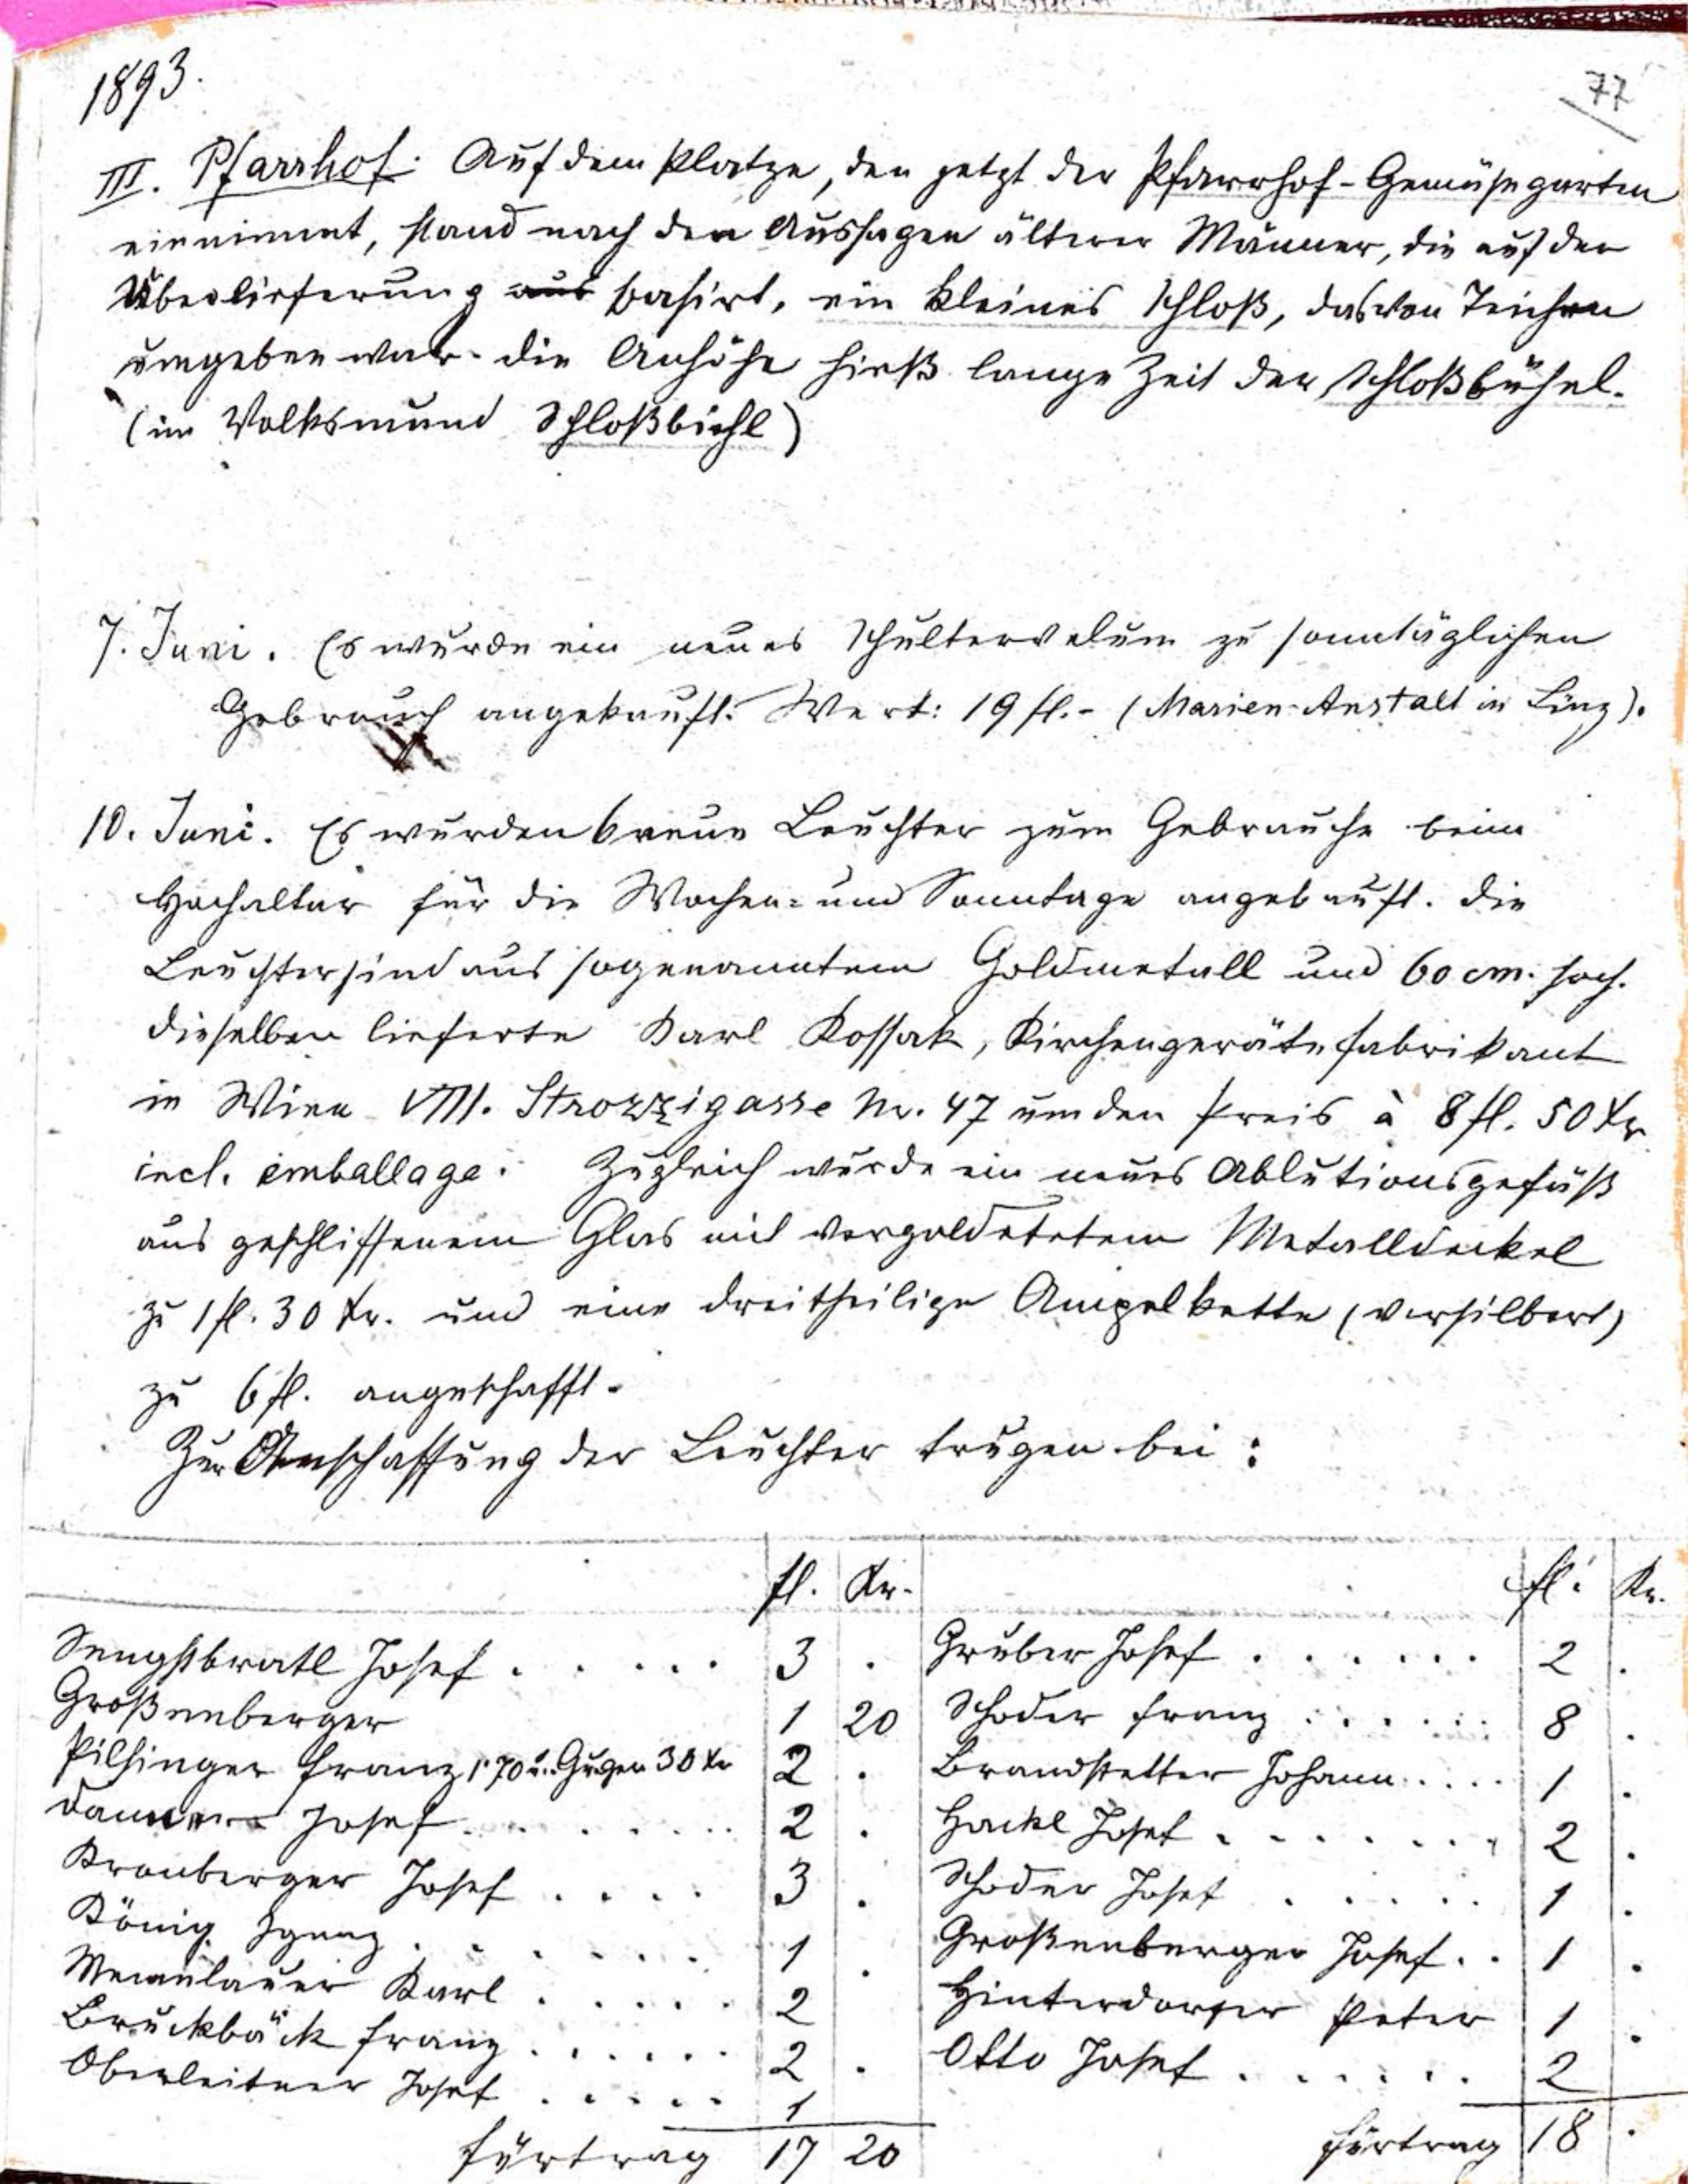 1893.
77
III. Pfarrhof. Auf dem Platze, den jetzt der Pfarrhof-Gemüsegarten
einnimmt, stand nach den Aussagen älterer Männer, die auf der
Überlieferung aus basirt, ein kleines Schloß, das von Teichen
umgeben war. die Anhöhe hieß lange Zeit der Schloßbühel.
(im Volksmund Schloßbichl)
7. Juni. Es wurde ein neues Schultervelum zu sonntäglichen
Gebrauch angekauft. Wert: 19 fl.- (Marien-Anstalt in Linz).
10. Juni. Es wurden 6 neue Leuchter zum Gebrauche beim
Hochaltar für die Wochen- und Sonntage angekauft. die
Leuchter sind aus sogenanntem Goldmetall und 60 cm. hoch.
dieselben lieferte Karl Kossak, Kirchengerätefabrikant
in Wien VIII. Strozzigasse Nr. 47 um den Preis à 8 fl. 50 kr
incl. emballage. Zugleich wurde ein neues Ablutionsgefäß
aus geschliffenem Glas mit vergoldetetem Metalldeckel
zu 1 fl. 30 kr. und eine dreitheilige Ampelkette (versilbert)
zu 6 fl. angeschafft.
Zur Anschaffung der Leuchter trugen bei:
fl. Kr. fl. Kr.
Sengstbratl Josef . . . . . 3 . Gruber Josef . . . . . . 2 .
Großenberger 1 20 Schoder Franz . . . . . . 8 .
Pilsinger Franz 1·70 u. 30 kr 2 . Brandstetter Johann . . . . 1 .
Josef . . . . . . . 2 . Hackl Josef . . . . . . . 2 .
Kronberger Josef . . . . 3 . Schoder Josef . . . . . 1 .
König Ignaz . . . . . . 1 . Großenberger Josef . . 1 .
Karl . . . . . 2 Hinterdorfer Peter 1 .
Bruckbäck Franz . . . . . . 2 . Otto Josef . . . . . . 2
Oberleitner Josef . . . . . 1
Fürtrag 17 20 Fürtrag 18 .